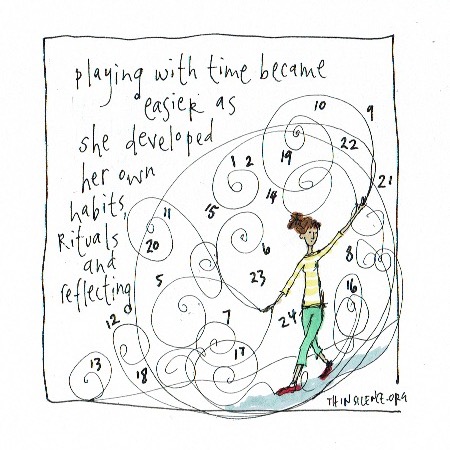 playing with time became
easier as
she developed
her own
habits,
Rituals
and
reflecting
10 9
22
1 2 19
21
14
15
11
20
6
8
5
23
16
24
7
12
17
18
13
THINSILENCE.ORG